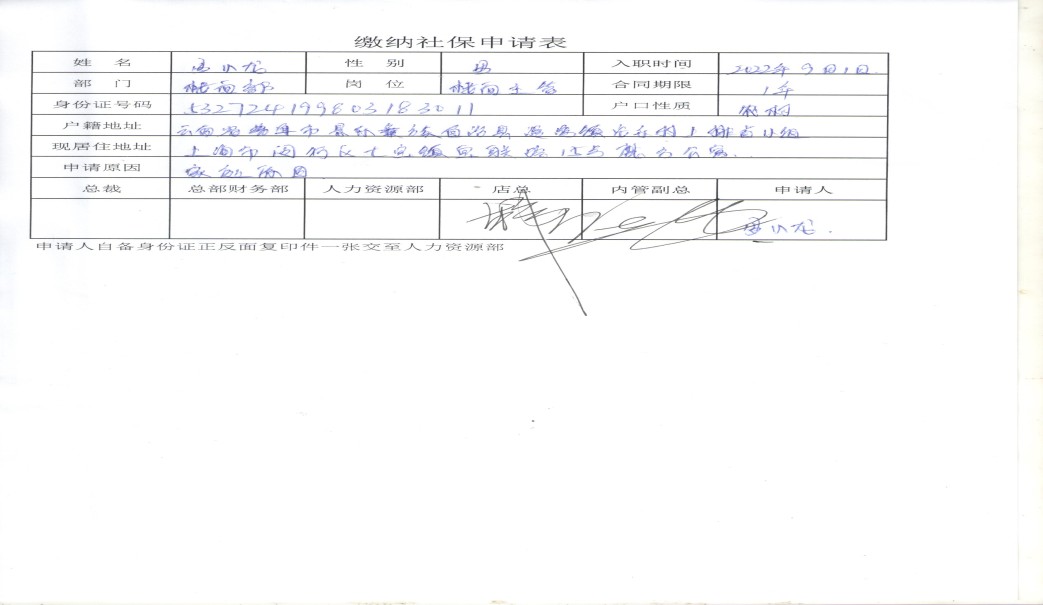 缴纳社保申请表
姓 名 小龙 性 别 男 入职时间 2022年9月1日
部 门 楼面部 岗 位 楼面主管 合同期限 1年
身份证号码 532724199803183011 户口性质 农村
户籍地址 云南省普洱市景谷傣族自治县 镇 村上 小组
现居住地址 上海市闵行区七宝镇 联 公寓
申请原因
总裁 总部财务部 人力资源部 店总 内管副总 申请人
小龙
申请人自备身份证正反面复印件一张交至人力资源部